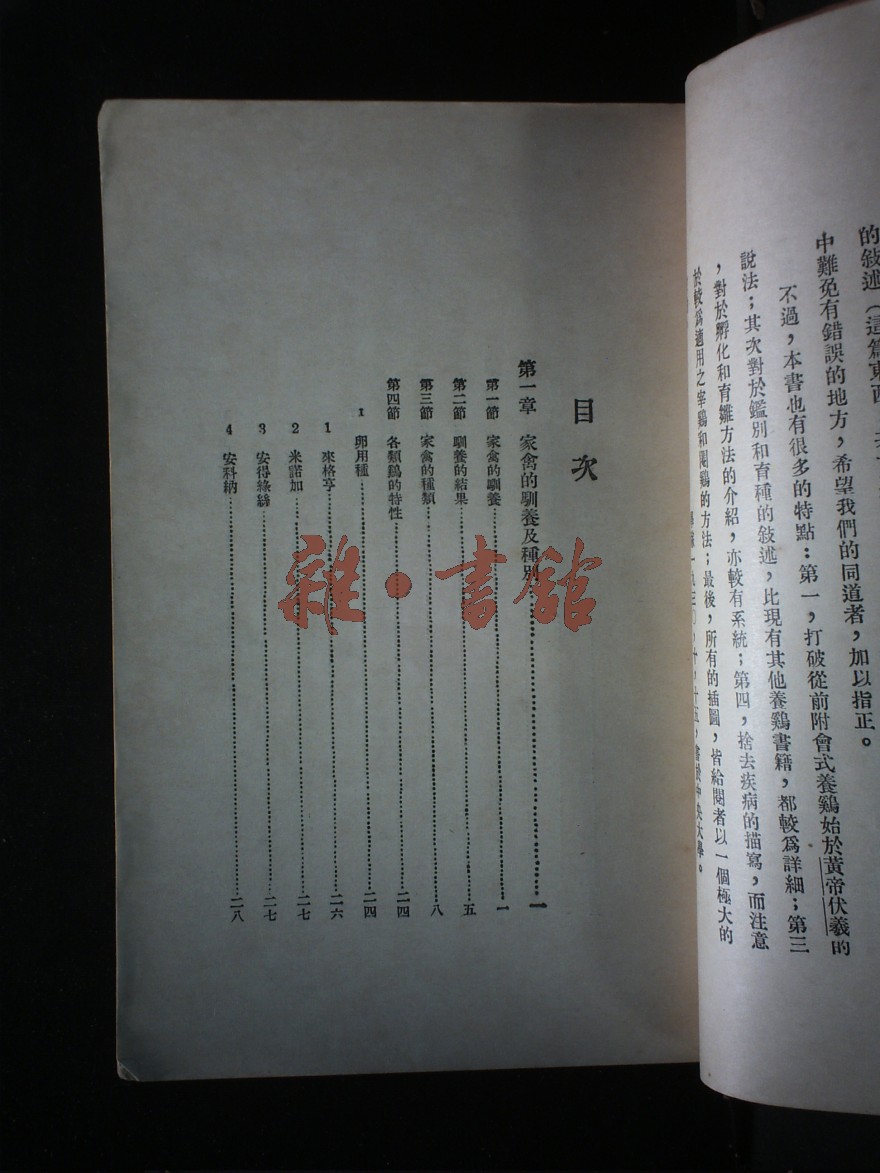 的敍述（這篇東西
中難免有錯誤的地方，希望我們的同道者，加以指正。
不過，本書也有很多的特點：第一，打破從前附會式養鷄始於黃帝伏羲的
說法；其次對於鑑別和育種的敍述，比現有其他養鷄書籍，都較爲詳細；第三
，對於孵化和育雛方法的介紹，亦較有系統；第四，捨去疾病的描寫，而注意
於較爲適用之宰鷄和閹鷄的方法；最後，所有的插圖，皆給閱者以一個極大的
一九三〇，十，十五，書於中央大學。
目次
第一章 家禽的馴養及種別……一
第一節 家禽的馴養……一
第二節 馴養的結果……五
第三節 家禽的種類……八
第四節 各類鷄的特性……二四
I 卵用種……二四
1 來格亨……二六
2 米諾加……二七
3 安得綠絲……二七
4 安科納……二八
雜·書館